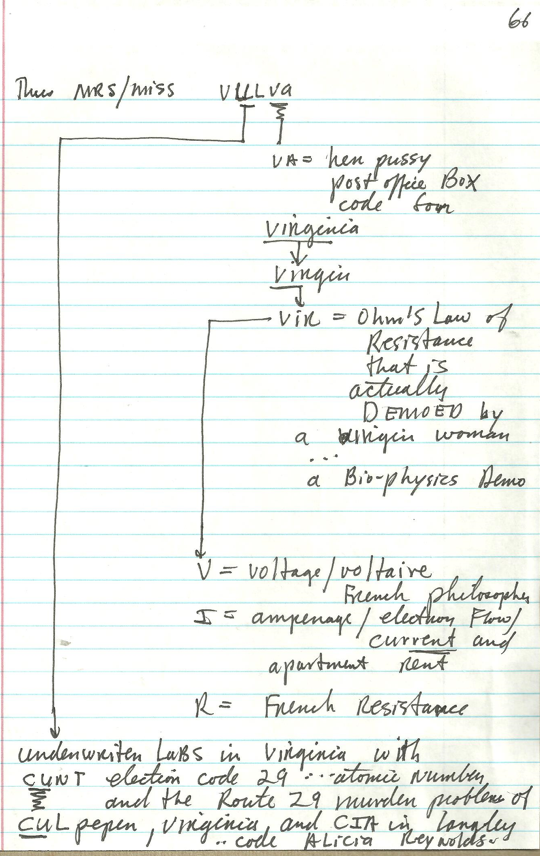 66
Thus MRS/miss VULLva
VA = her pussy
post office Box
code for
Virginia
Virgin
VIR = Ohm's Law of
Resistance
that is
actually
DEMOED by
a Virgin woman
...
a Bio-physics Demo
V = voltage/voltaire
French philosopher
I = amperage/election Flow/
current and
apartment rent
R = French Resistance
underwriten LABS in Virginia with
CUNT election code 29 ... atomic number
and the Route 29 murder problems of
CULpeper, Virginia, and CIA in Langley
.. code Alicia Reynolds.